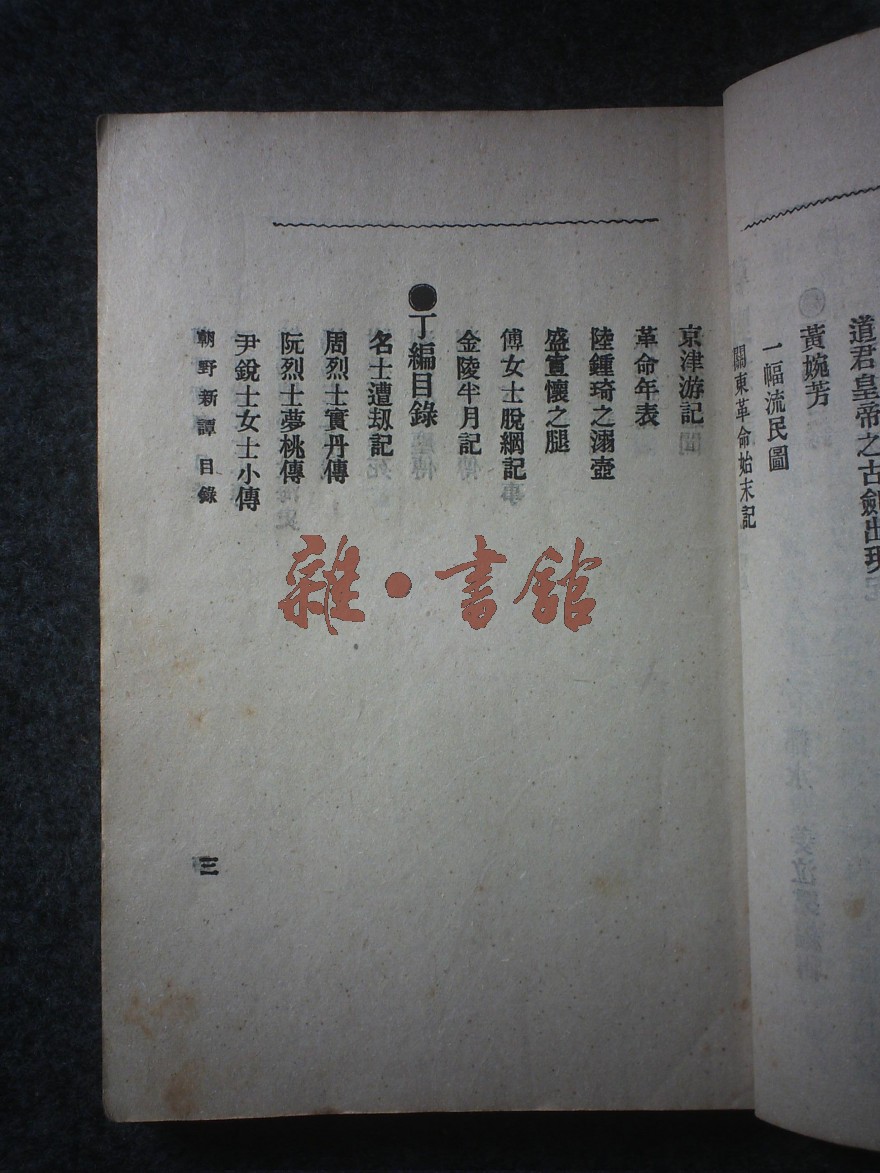 道君皇帝之古劍出現記
黃婉芳
一幅流民圖
關東革命始末記
京津游記
革命年表
陸鍾琦之溺壺
盛宣懷之腿
傅女士脫網記
金陵半月記
●丁編目錄
名士遭刼記
周烈士實丹傳
阮烈士夢桃傳
尹銳士女士小傳
朝野新譚 目錄
三
雜·書館